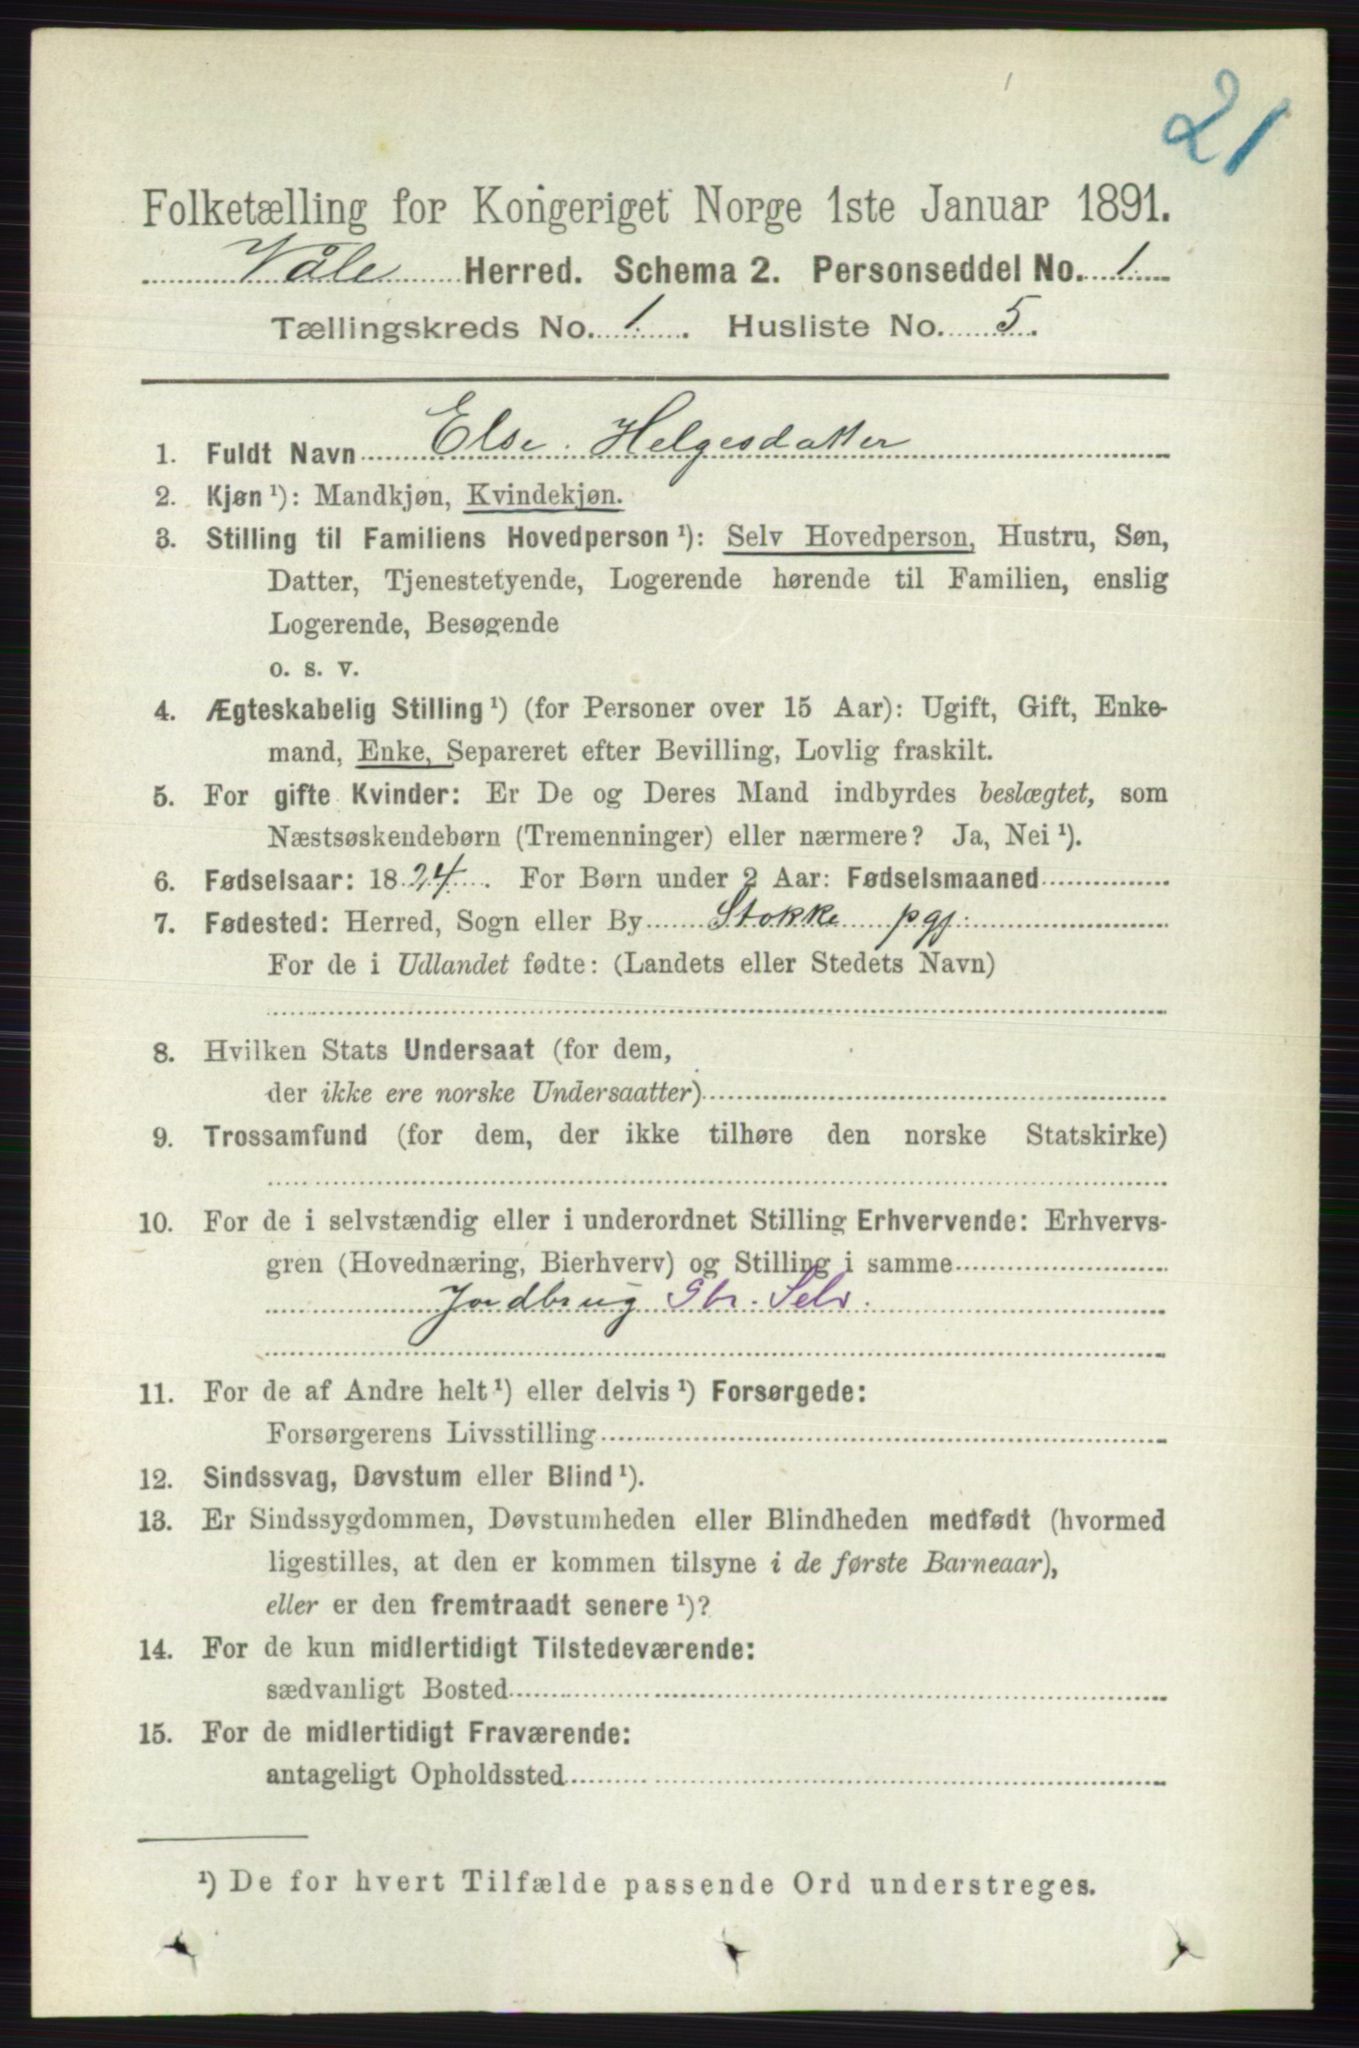 21
Folketælling for Kongeriget Norge 1ste Januar 1891.
Våle Herred. Schema 2. Personseddel No. 1
Tællingskreds No. 1. Husliste No. 5.
1. Fuldt Navn Else Helgesdatter
2. Kjøn ¹): Mandkjøn, Kvindekjøn.
3. Stilling til Familiens Hovedperson ¹): Selv Hovedperson, Hustru, Søn,
Datter, Tjenestetyende, Logerende hørende til Familien, enslig
Logerende, Besøgende
o. s. v.
4. Ægteskabelig Stilling ¹) (for Personer over 15 Aar): Ugift, Gift, Enke-
mand, Enke, Separeret efter Bevilling, Lovlig fraskilt.
5. For gifte Kvinder: Er De og Deres Mand indbyrdes beslægtet, som
Næstsøskendebørn (Tremenninger) eller nærmere? Ja, Nei ¹).
6. Fødselsaar: 1824. For Børn under 2 Aar: Fødselsmaaned
7. Fødested: Herred, Sogn eller By Stokke pgj:
For de i Udlandet fødte: (Landets eller Stedets Navn)
8. Hvilken Stats Undersaat (for dem,
der ikke ere norske Undersaatter)
9. Trossamfund (for dem, der ikke tilhøre den norske Statskirke)
10. For de i selvstændig eller i underordnet Stilling Erhvervende: Erhvervs-
gren (Hovednæring, Bierhverv) og Stilling i samme
Jordbrug Gbr. Selv.
11. For de af Andre helt ¹) eller delvis ¹) Forsørgede:
Forsørgerens Livsstilling
12. Sindssvag, Døvstum eller Blind ¹).
13. Er Sindssygdommen, Døvstumheden eller Blindheden medfødt (hvormed
ligestilles, at den er kommen tilsyne i de første Barneaar),
eller er den fremtraadt senere ¹)?
14. For de kun midlertidigt Tilstedeværende:
sædvanligt Bosted
15. For de midlertidigt Fraværende:
antageligt Opholdssted
¹) De for hvert Tilfælde passende Ord understreges.